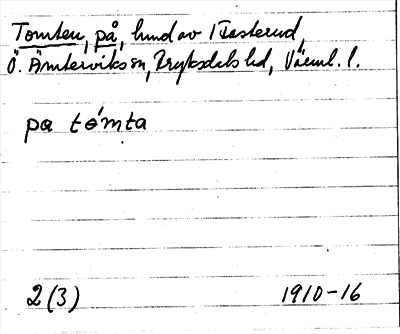 Tomten, på, lund av 1 Kasterud,
Ö. Ämterviks sn, Fryksdals hd, Värml. l.
pa tómta
2(3) 1910-16